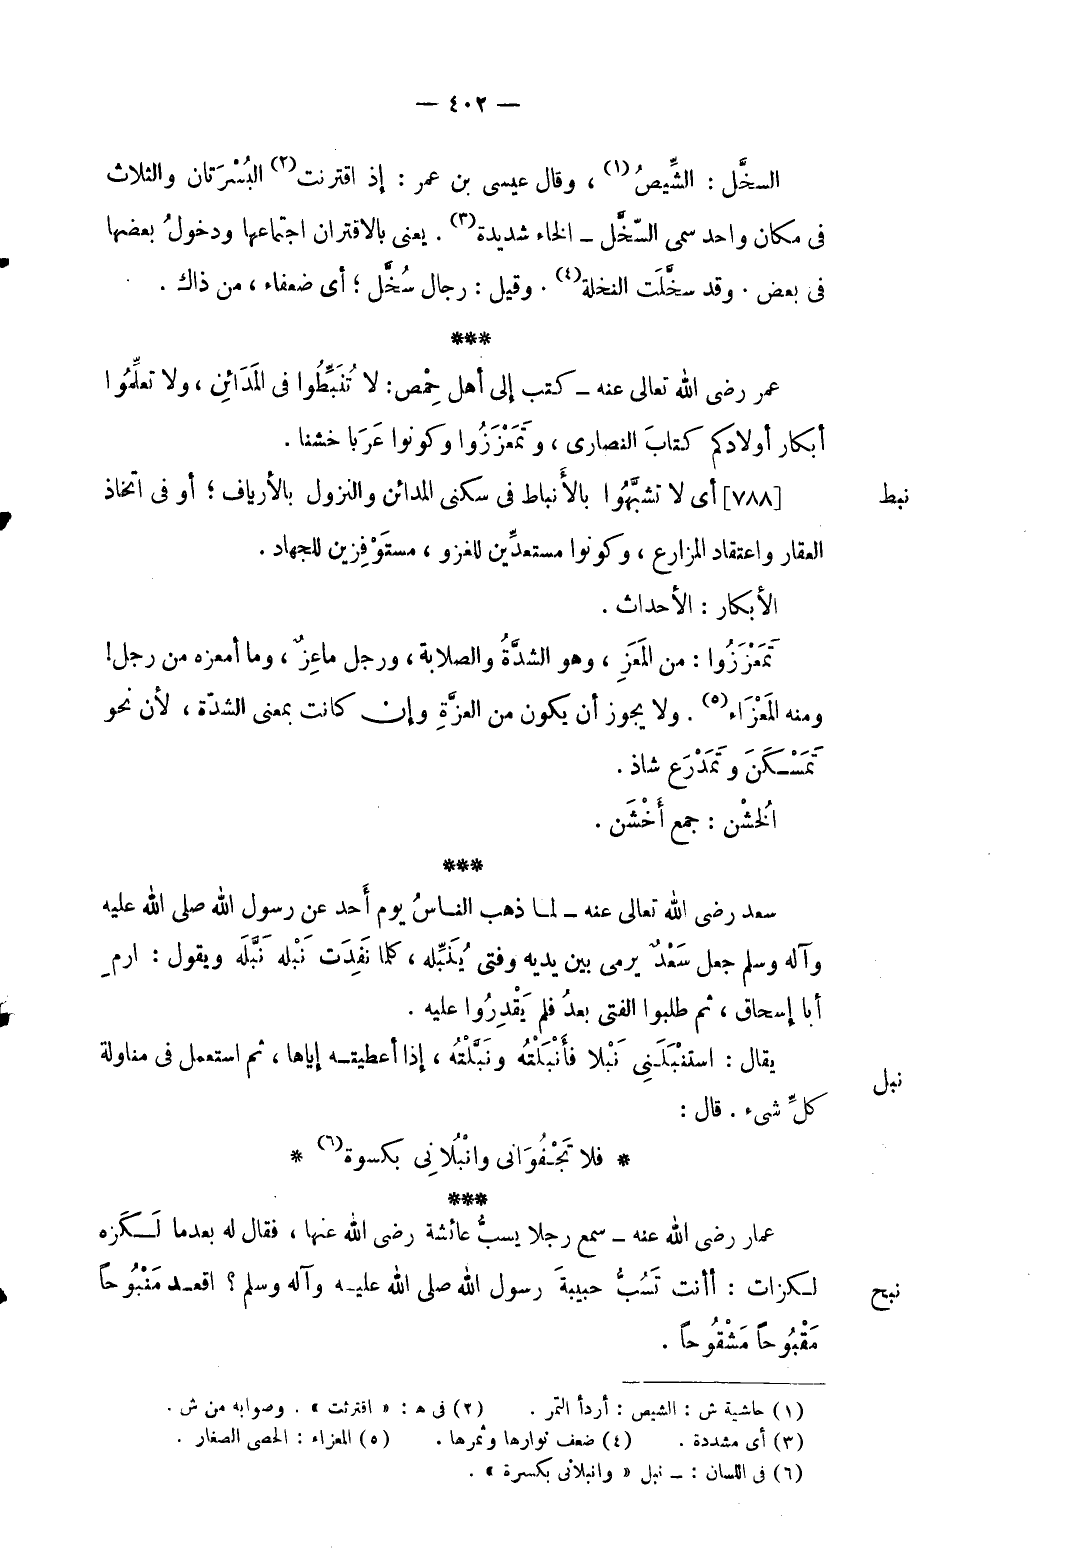 — ٤٠٢ —
السخَّل : الشِّيصُ(١) ، وقال عيسى بن عمر : إذ اقترنت(٢) البُسْرَتان والثلاث
فى مكان واحد سمى السّخَّل – الخاء شديدة(٣) . يعنى بالاقتران اجتماعها ودخولُ بعضها
فى بعض . وقد سخَّلَت النخلة(٤) . وقيل : رجال سُخَّل ؛ أى ضعفاء ، من ذاك .
***
عمر رضى الله تعالى عنه – كتب إلى أهل حِمْص : لا تُنَبِّطُوا فى المَدَائنِ ، ولا تعلِّمُوا
أبكار أولادكم كتابَ النصارى ، وتَمَعْزَزُوا وكونوا عَرَبا خشنا .
نبط [٧٨٨] أى لا تشبَّهُوا بالأَنباط فى سكنى المدائن والنزول بالأرياف ؛ أو فى اتخاذ
العقار واعتقاد المزارع ، وكونوا مستعدِّين للغزو ، مستَوْفِزين للجهاد .
الأبكار : الأحداث .
تَمَعْزَزُوا : من المَعَزِ ، وهو الشدَّةُ والصلابة ، ورجل ماعِزٌ ، وما أمعزه من رجل!
ومنه المَعْزَاء(٥) . ولا يجوز أن يكون من العزَّةِ وإن كانت بمعنى الشدّة ، لأن نحو
تَمَسْكَنَ وتَمَدْرَع شاذ .
الُخشْن : جمع أَخْشَن .
***
سعد رضى الله تعالى عنه – لما ذهب الناسُ يوم أُحد عن رسول الله صلى الله عليه
وآله وسلم جعل سَعْدٌ يرمى بين يديه وفتى يُنَبِّله ، كلما نَفِدَت نَبْله نَبَّلَه ويقول : ارمِ
أبا إسحاق ، ثم طلبوا الفتى بعدُ فلم يَقْدِرُوا عليه .
نبل يقال : استنْبَلَنِى نَبْلا فأَنْبَلْتُه ونَبَّلْتُه ، إذا أعطيته إياها ، ثم استعمل فى مناولة
كلِّ شىء . قال :
* فلا تَجْفُوَانى وانْبُلَانِى بكسوة(٦) *
***
عمار رضى الله عنه – سمع رجلا يسبُّ عائشة رضى الله عنها ، فقال له بعدما لَكَزه
نبح لكزات : أأنت تَسُبُّ حبيبةَ رسول الله صلى الله عليه وآله وسلم ؟ اقعد مَنْبُوحاً
مَقْبُوحاً مَشْقُوحاً .
(١) حاشية ش : الشيص : أردأ التمر . (٢) فى ه : « افترثت » . وصوابه من ش .
(٣) أى مشددة . (٤) ضعف نوارها وثمرها . (٥) المعزاء : الحصى الصغار .
(٦) فى اللسان : – نبل « وانبلانى بكسرة » .